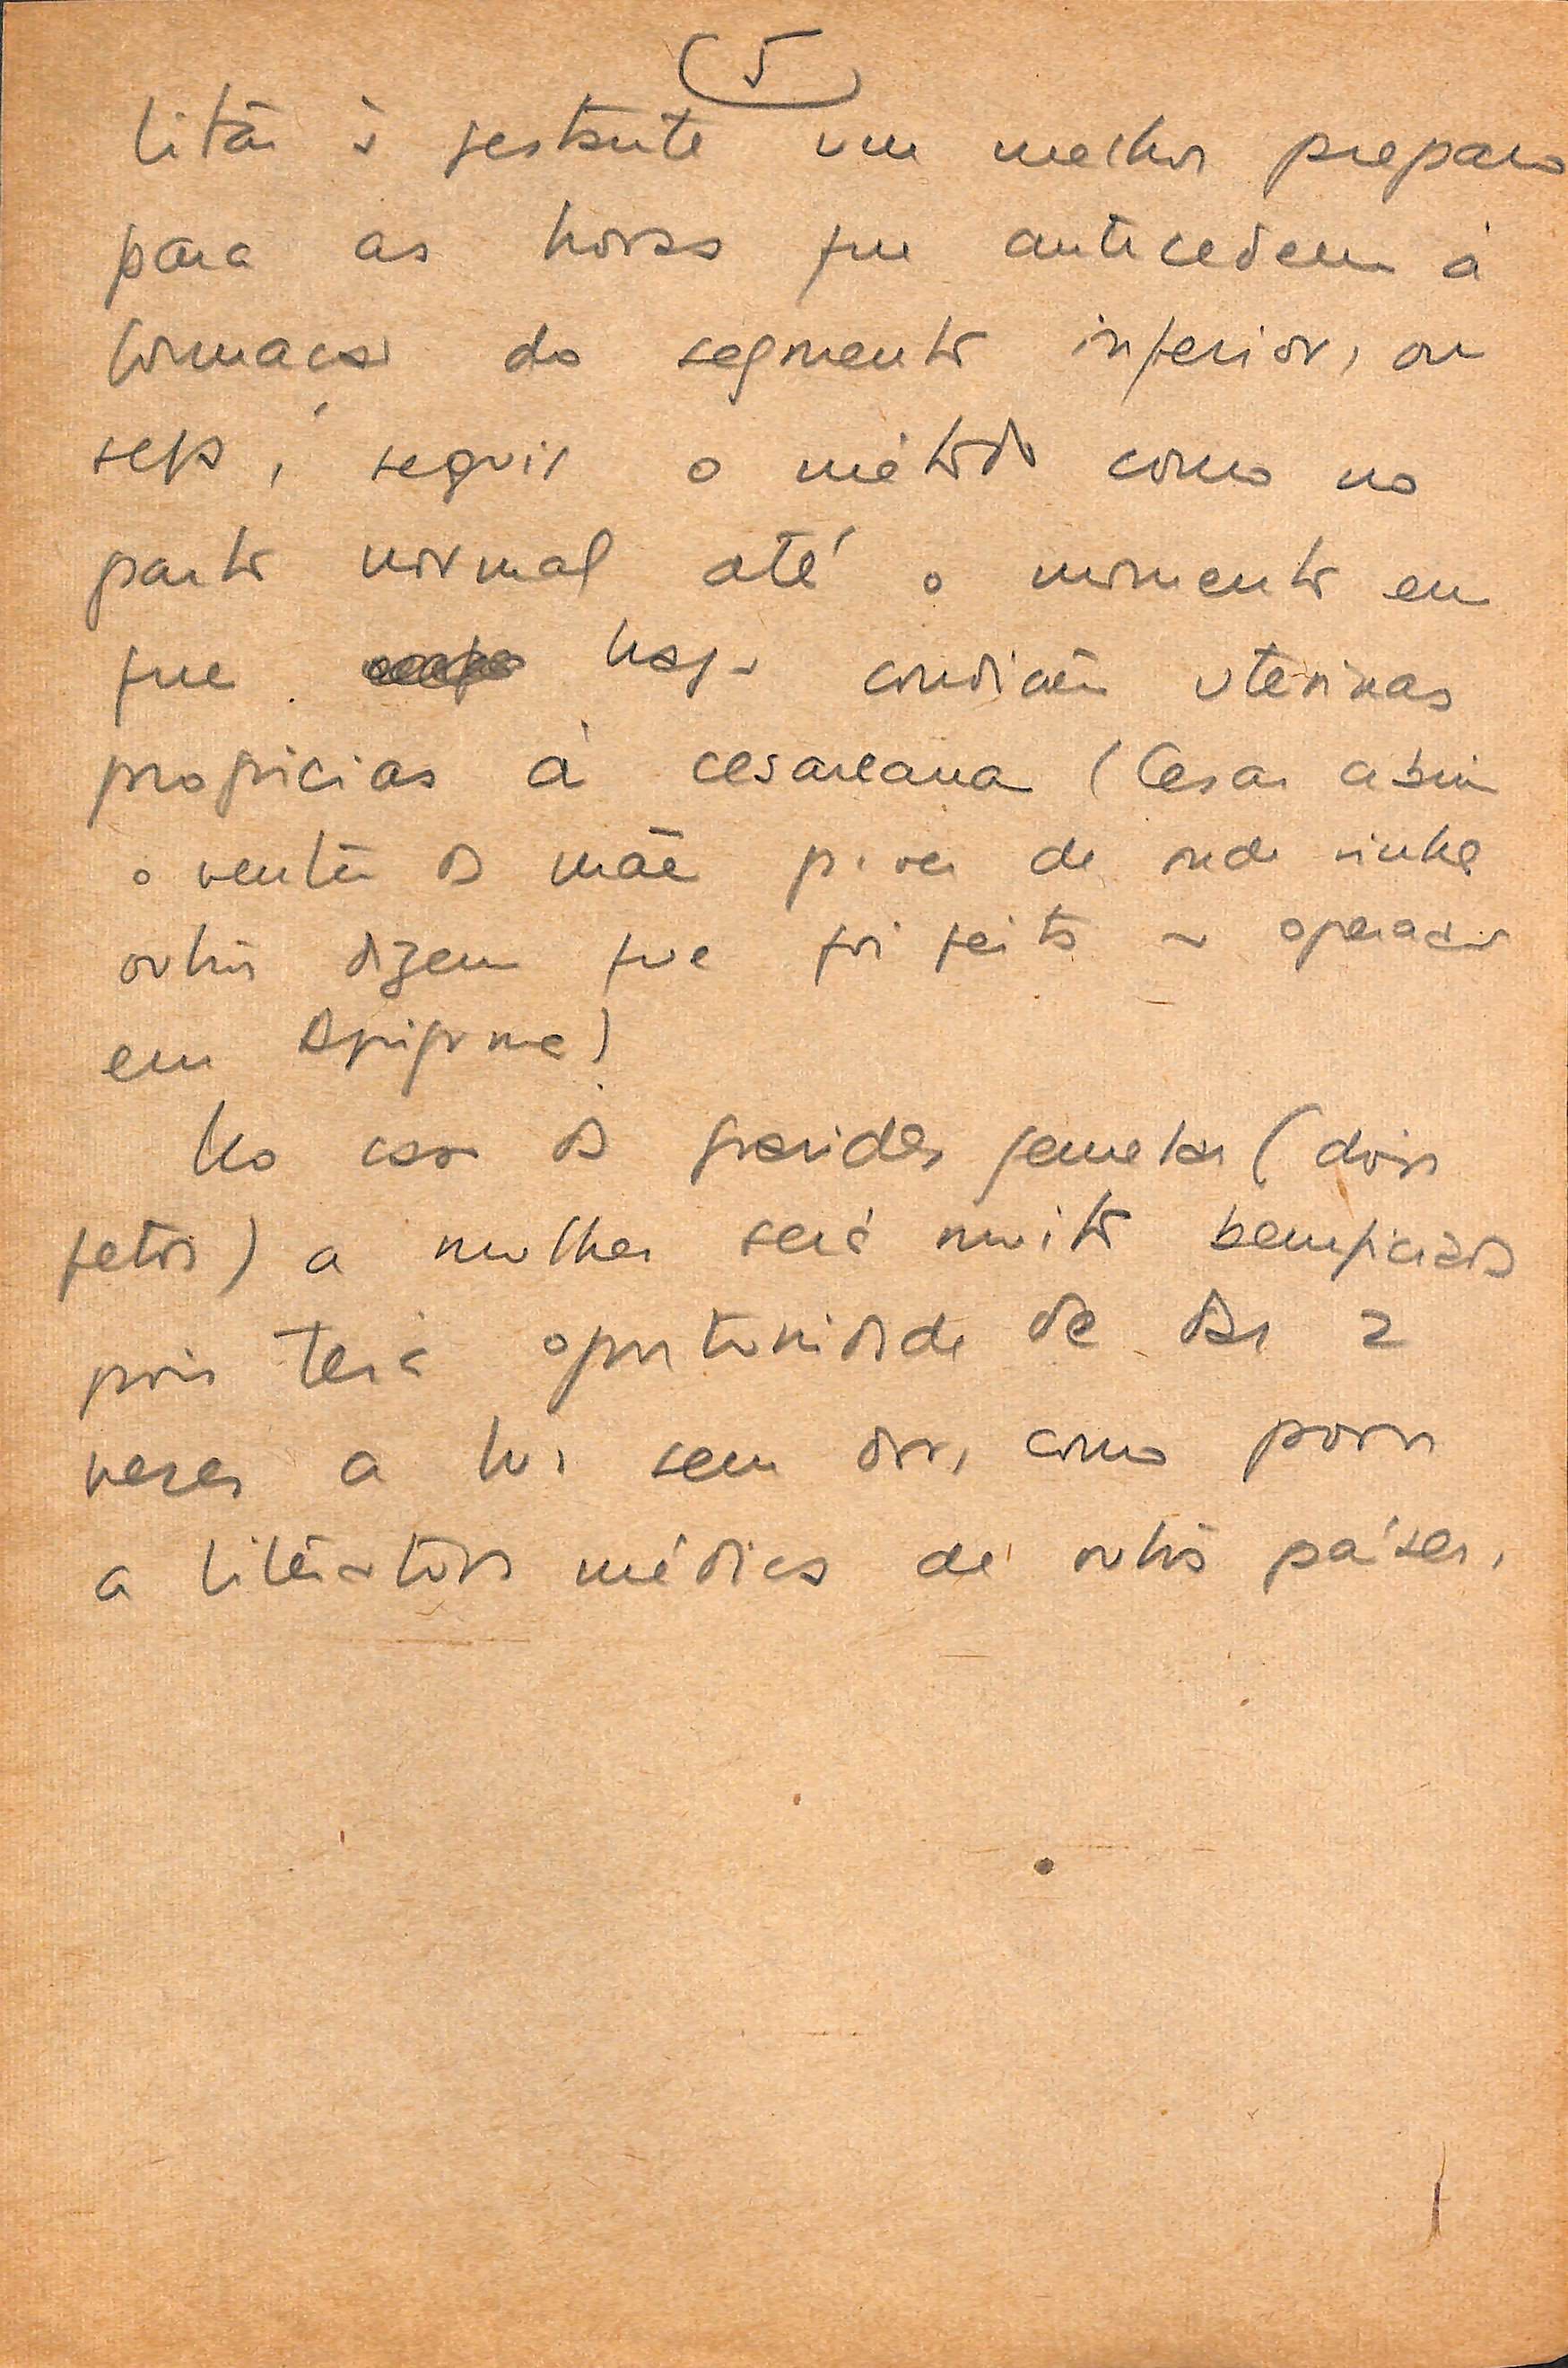 5
litar à gestante um melhor preparo
para as horas que antecedem à
formação do segmento inferior, ou
seja, seguir o método como no
parto normal até o momento em
que haja condições uterinas
propicias à cesareana (Cesar abriu
o ventre da mãe p. ver de onde vinha
outros dizem que foi feita a operação
em Agripina)
No caso da gravidez gemelar (dois
fetos) a mulher será muito beneficiada
pois terá oportunidade de dar 2
vezes a luz sem dor, como
a literatura médica de outros países.